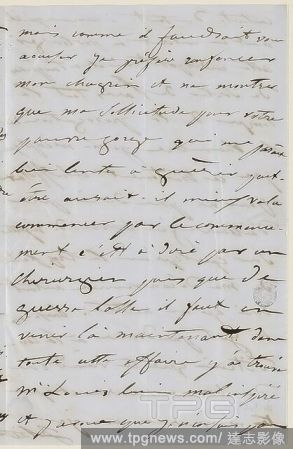 mais comme il faudrait vous
accuser je préfère renfoncer
mon chagrin et ne montrer
que ma sollicitude pour votre
pauvre gorge qui me paraît
bien lente à guérir peut-
être aurait-il mieux valu
commencer par le commence
ment c'est à dire par un
chirurgien puis que de
guerre lasse il faut en
venir là maintenant. dans
toute cette affaire j'ai trouvé
Mr Louis bien mal
et j'avoue que je
TPG
www.tpgnews.com / 達志影像